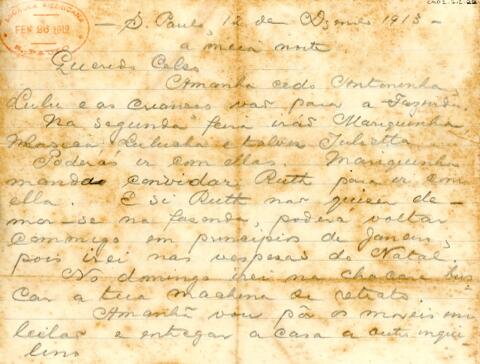 CA02.2.2.22
FEV 26 1912
— S. Paulo, 12 de Dezembro 1913 —
a meia noite
Querido Celso
Amanhã cedo Antoninha,
Lulu e as crianças vão para a Fazenda
Na segunda feira irão Mariquinha
Lulucha e talvez Julietta
Poderás ir com ellas. Mariquinha
manda convidar Ruth para ir com
ella. E si Ruth não quizer de-
mor-se na fazenda, poderá voltar
commigo em principios de Janeiro,
pois irei nas vesperas do Natal.
No domingo irei na chacara bus
car a tua machina de retrato.
Amanhã vou pôr os moveis em
leilão e entregar a casa a outro inqui
lino